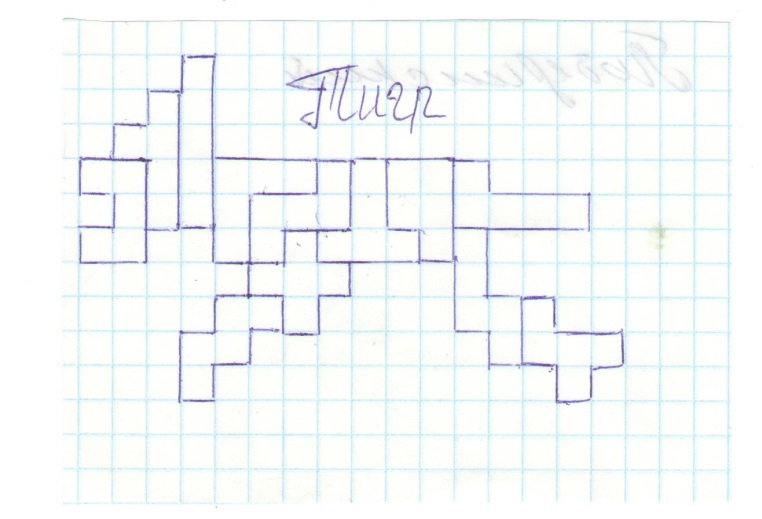 Тигр